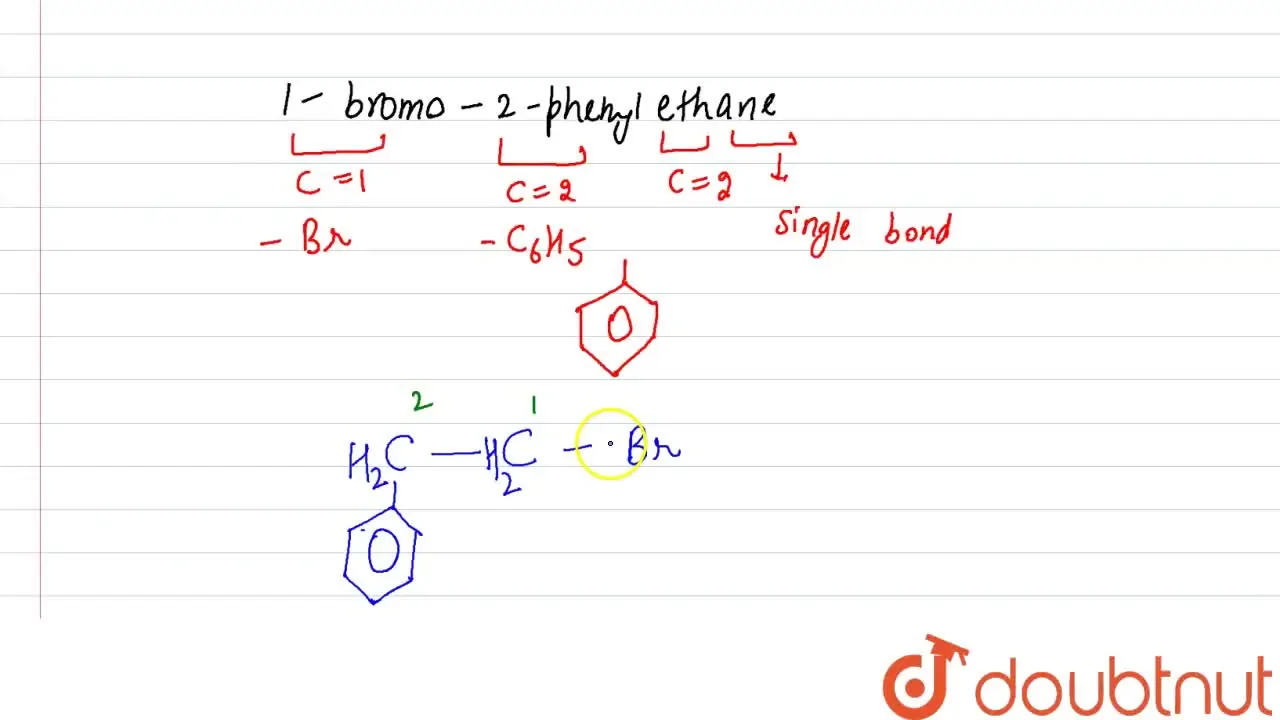 1- bromo - 2 -phenyl ethane
C =1
C = 2
C = 2
- Br
- C6H5
Single bond
2
1
H2C — H2C - Br
doubtnut